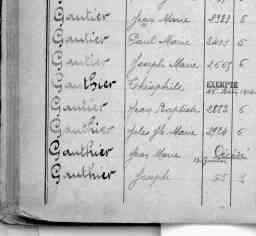 Gautier Jean Marie 2923 6
Gautier Paul Marie 6
Gautier Joseph Marie 2565 6
Gauthier Théophile EXEMPTÉ
Gautier Jean Baptiste 2882 6
Gauthier Jules 2924 6
Gauthier Jean Marie Décédé
Gauthier Joseph 55